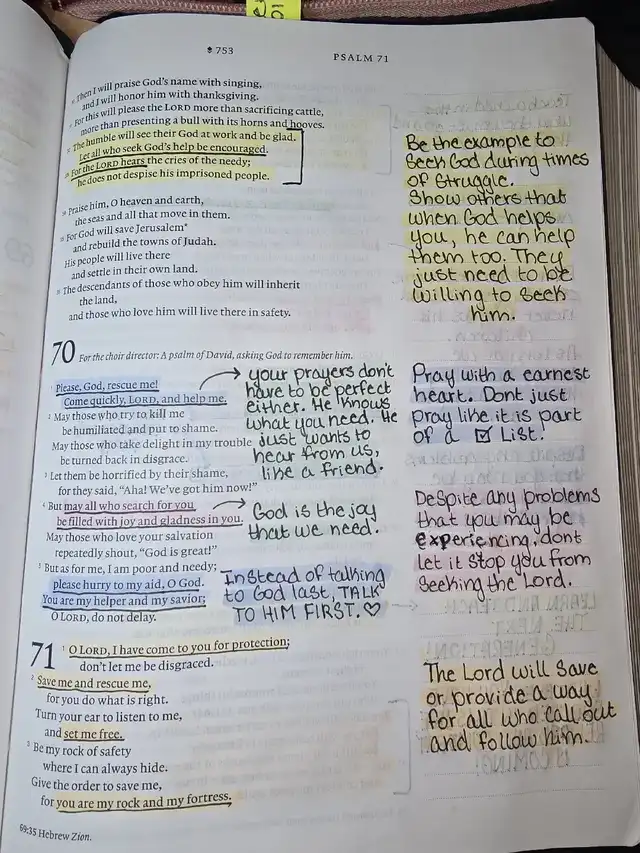 753
PSALM 71
Then I will praise God's name with singing,
and I will honor him with thanksgiving.
For this will please the LORD more than sacrificing cattle,
more than presenting a bull with its horns and hooves.
The humble will see their God at work and be glad.
Let all who seek God's help be encouraged.
For the LORD hears the cries of the needy;
he does not despise his imprisoned people.
Praise him, O heaven and earth,
the seas and all that move in them.
For God will save Jerusalem*
and rebuild the towns of Judah.
His people will live there
and settle in their own land.
The descendants of those who obey him will inherit
the land,
and those who love him will live there in safety.
Be the example to
seek God during times
of struggle.
Show others that
when God helps
you, he can help
them too. They
just need to be
willing to seek
him.
70 For the choir director: A psalm of David, asking God to remember him.
1 Please, God, rescue me!
Come quickly, LORD, and help me.
2 May those who try to kill me
be humiliated and put to shame.
May those who take delight in my trouble
be turned back in disgrace.
3 Let them be horrified by their shame,
for they said, "Aha! We've got him now!"
4 But may all who search for you
be filled with joy and gladness in you.
May those who love your salvation
repeatedly shout, "God is great!"
5 But as for me, I am poor and needy;
please hurry to my aid, O God.
You are my helper and my savior;
O LORD, do not delay.
your prayers don't
have to be perfect
either. He knows
what you need. He
just wants to
hear from us,
like a friend.
God is the joy
that we need.
Instead of talking
to God last, TALK
TO HIM FIRST. ♡
Pray with a earnest
heart. Dont just
pray like it is part
of a ☑ List!
Despite any problems
that you may be
experiencing, dont
let it stop you from
seeking the Lord.
71 1 O LORD, I have come to you for protection;
don't let me be disgraced.
2 Save me and rescue me,
for you do what is right.
Turn your ear to listen to me,
and set me free.
3 Be my rock of safety
where I can always hide.
Give the order to save me,
for you are my rock and my fortress.
The Lord will save
or provide a way
for all who call out
and follow him.
69:35 Hebrew Zion.